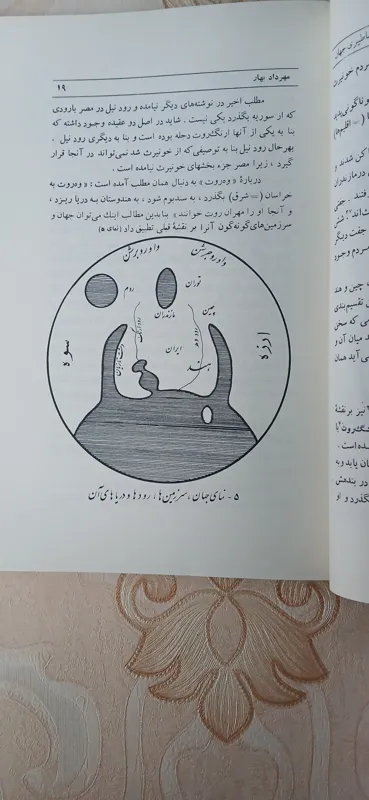 مهرداد بهار
۱۹
مطلب اخیر در نوشته‌های دیگر نیامده و رود نیل در مصر بارودی
که از سوریه بگذرد یکی نیست. شاید در اصل دو عقیده وجود داشته که
بنا به یکی از آنها ارنگ‌روت دجله بوده است و بنا به دیگری رود نیل.
بهرحال رود نیل بنا به توصیفی که از خونیرث شد نمی‌تواند در آنجا قرار
گیرد، زیرا مصر جزء بخشهای خونیرث نیامده است.
دربارهٔ «وه‌روت» به دنبال همان مطلب آمده است: «وه‌روت به
خراسان (= شرق) بگذرد، به سندبوم شود، به هندوستان به دریا ریزد،
و آنجا او را مهران روت خوانند» بنابدین مطالب اینک می‌توان جهان و
سرزمین‌های گونه‌گون آنرا بر نقشهٔ قبلی تطبیق داد (نمای ۵)
ووروجرشن
وروبرشن
توران
روم
مازندران
چین
ایران
هند
ارزه
سوه
۵ - نمای جهان، سرزمین‌ها، رودها و دریاهای آن
مردم خونیرث
چین و هند
تقسیم‌بندی
میان آن و
نیز بر نقشهٔ
شده است.
در بندهش
بگذرد و او